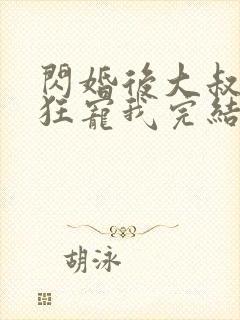 閃婚後大叔
狂寵我完結
胡泳